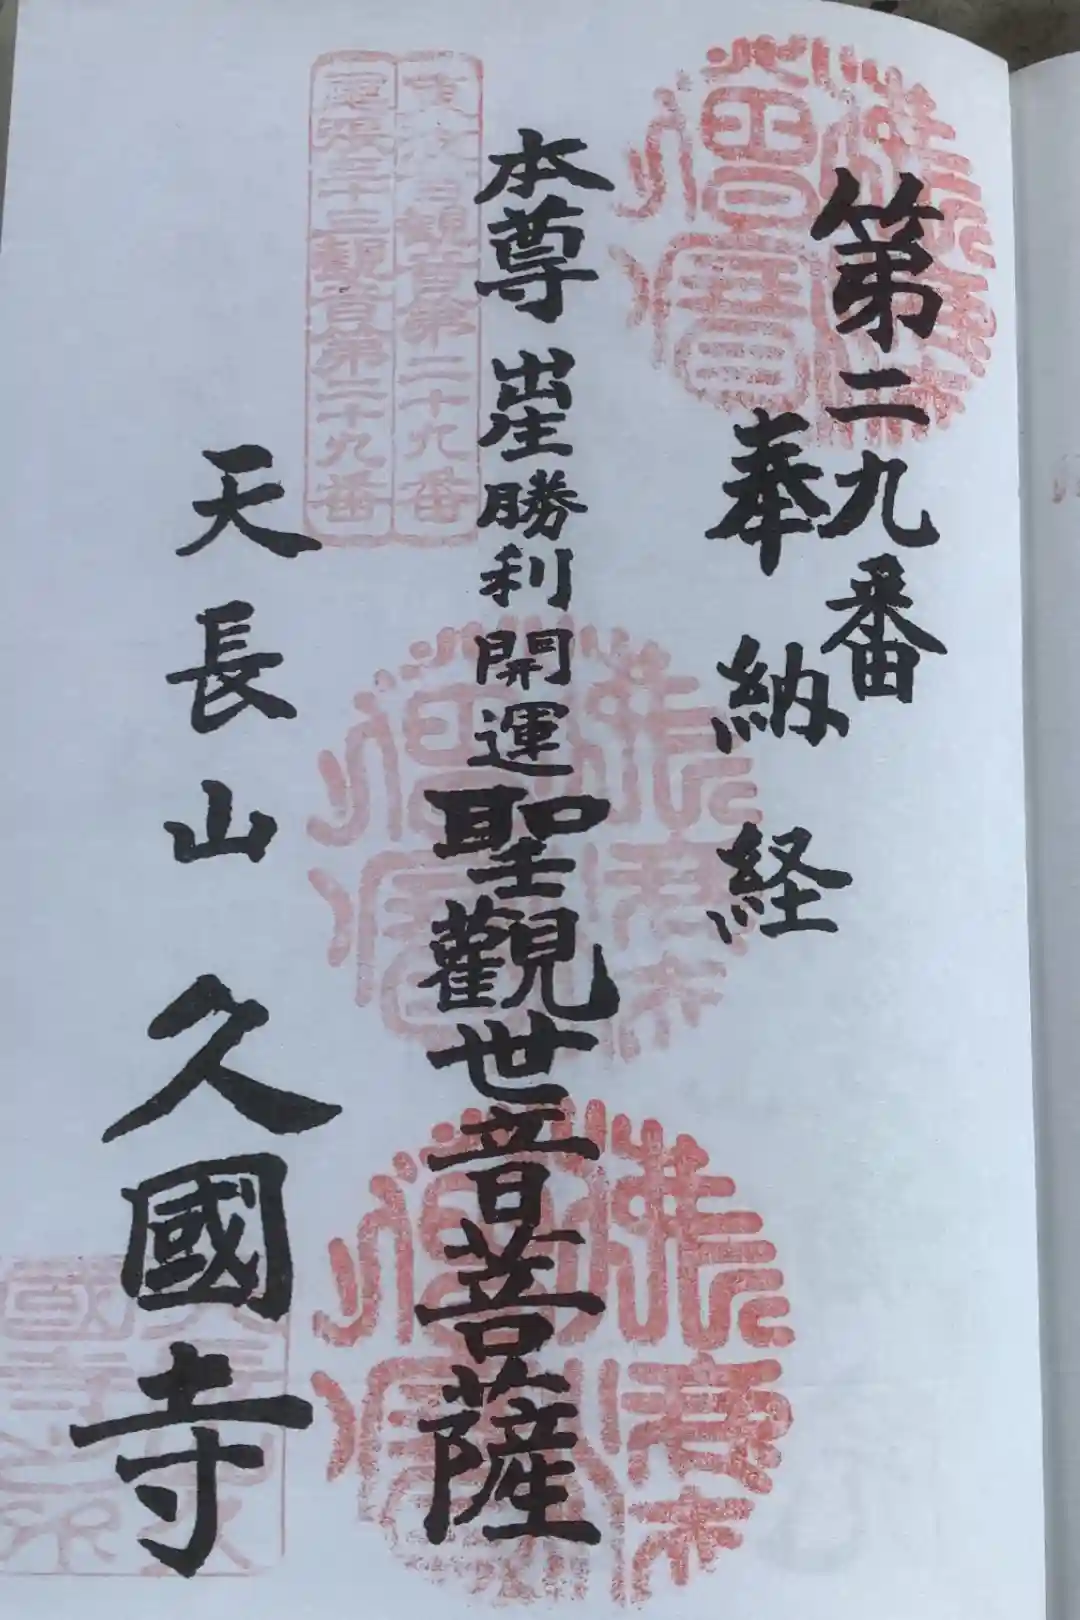 第二九番
奉納経
本尊 出生勝利開運聖觀世音菩薩
觀音第二十九番
三十三觀音第二十九番
天長山 久國寺